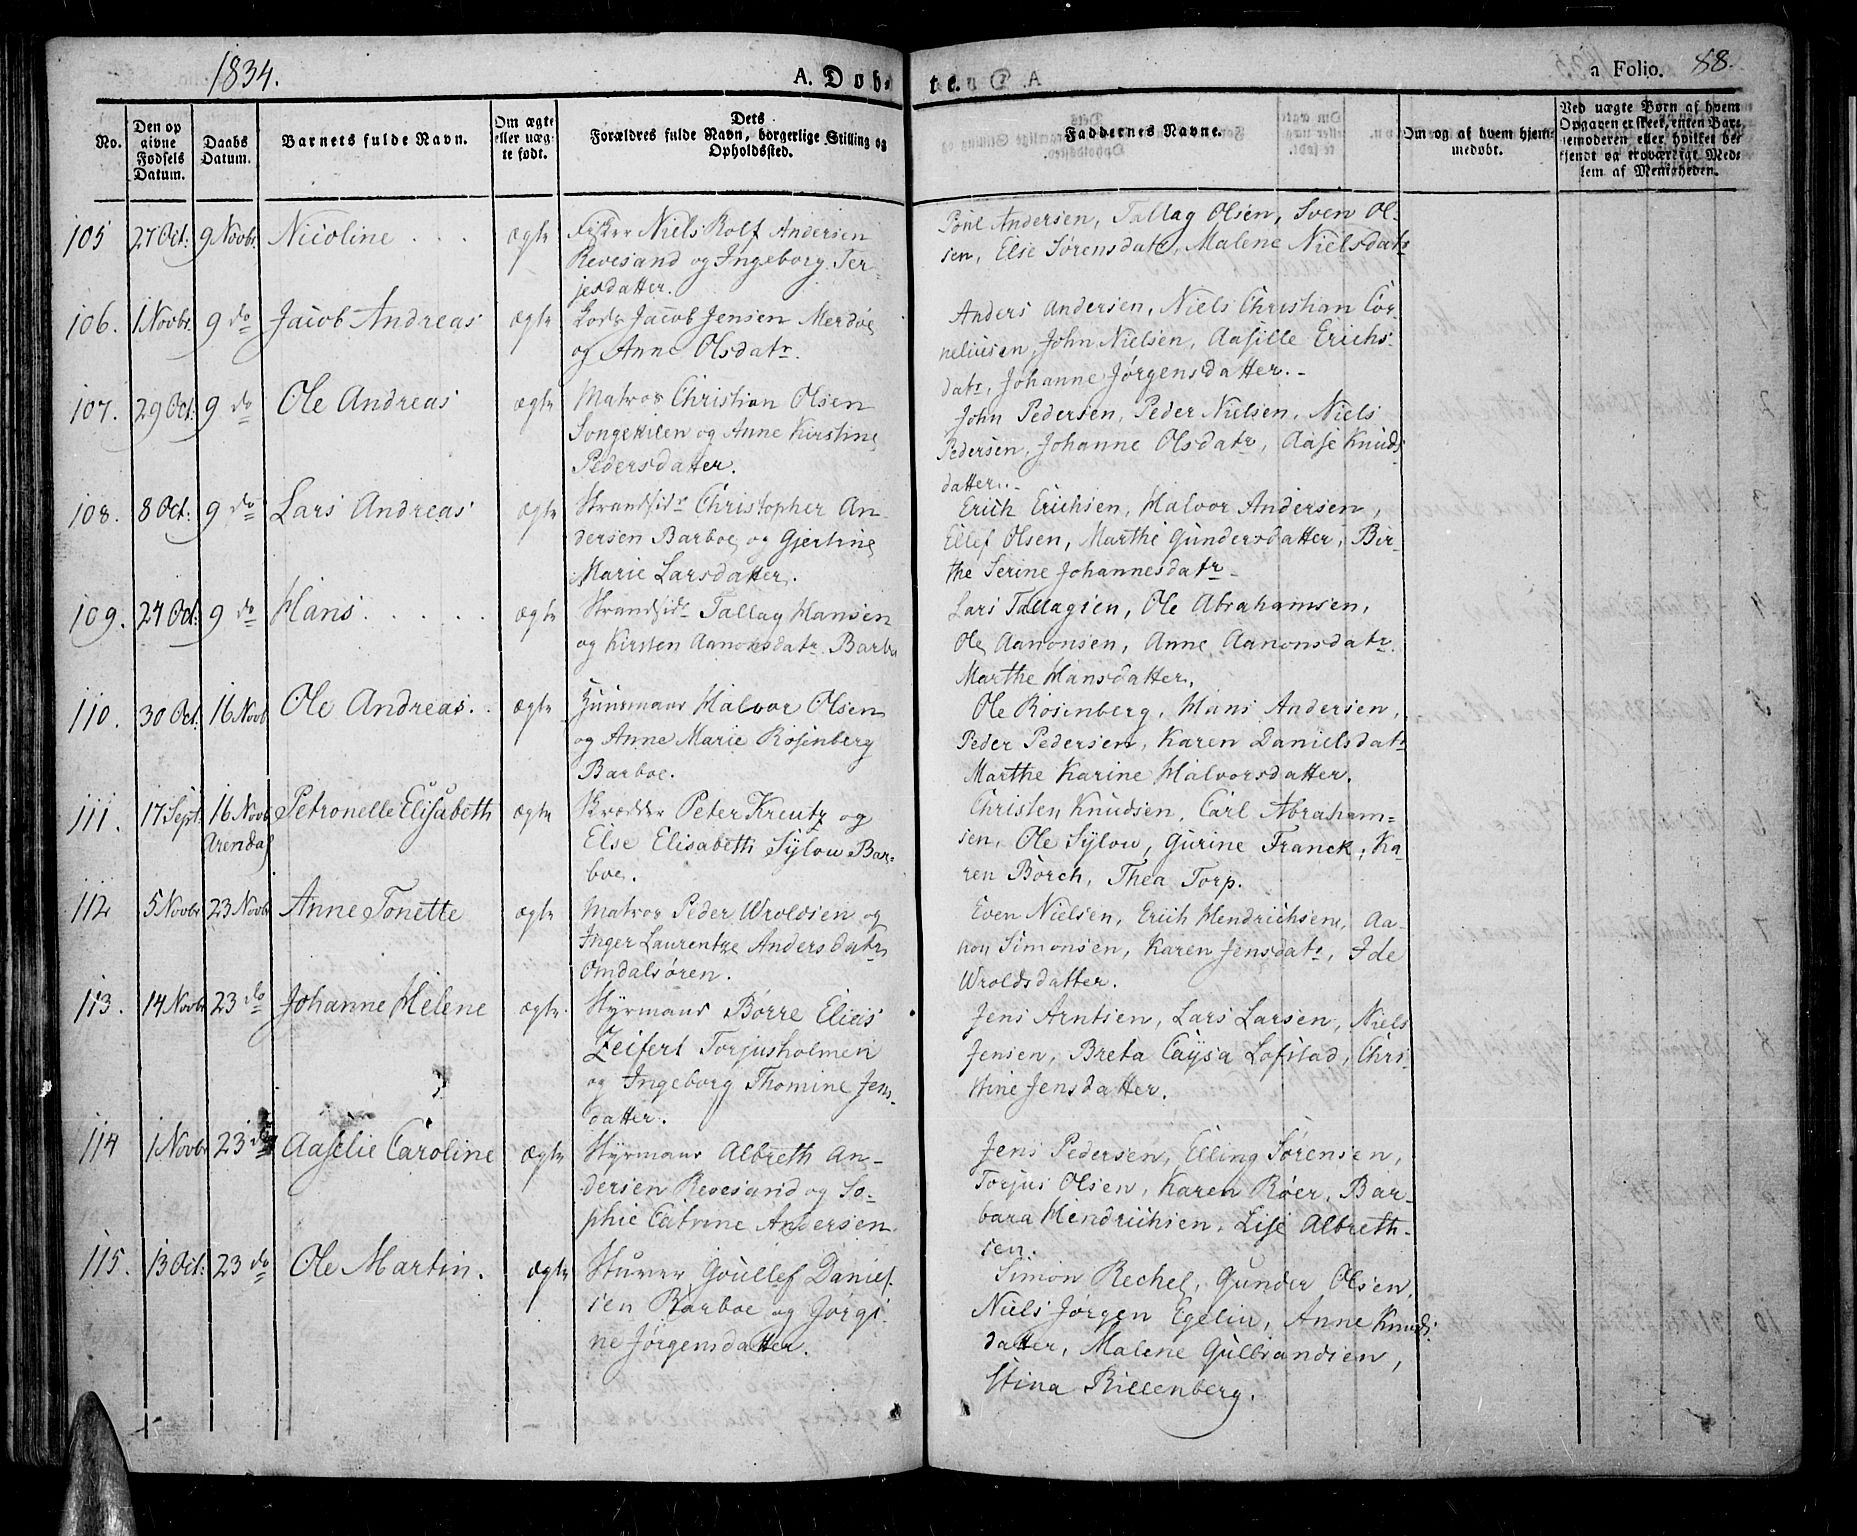 1834.
A. Døb-
te.
a Folio. 88.
No.
Den opgivne Fødsels Datum.
Daabs Datum.
Barnets fulde Navn.
Om ægte eller uægte født.
Dets Forældres fulde Navn, borgerlige Stilling og Opholdssted.
Faddernes Navne.
Om og af hvem hjemmedøbt.
Ved uægte Børn af hvem Opgaven er skeet, enten Barnemoderen eller hvilket bekjendt og troværdigt Medlem af Menigheden.
105 27 Oct: 9 Novbr. Nicoline . . . ægte Fisker Niels Rolf Andersen
Revesand og Ingeborg Ter-
jesdatter.
Poul Andersen, Tallag Olsen, Sven Ol-
sen, Else Sørensdatr, Malene Nielsdatr
106. 1 Novbr. 9 do Jacob Andreas ægte Lods Jacob Jensen Merdøe
og Anne Olsdatr.
Anders Andersen, Niels Christian Cor-
neliusen, John Nielsen, Aasille Erichs-
datr, Johanne Jørgensdatter.-
107. 29 Oct: 9 do Ole Andreas ægte Matros Christian Olsen
Songekilen og Anne Kirstine
Pedersdatter.
John Pedersen, Peder Nielsen, Niels
Pedersen, Johanne Olsdatr, Aase Knuds-
datter.-
108. 8 Oct: 9 do Lars Andreas ægte Strandsidr Christopher An-
dersen Barboe og Gjertine
Marie Larsdatter.
Erich Erichsen, Halvor Andersen,
Ellef Olsen, Marthe Gundersdatter, Bir-
the Serine Johannesdatr-
109. 24 Oct: 9 do Hans . . . . . ægte Strandsidr Tallag Hansen
og Kirsten Aanonsdatr Barbo
Lars Tallagsen, Ole Abrahamsen,
Ole Aanonsen, Anne Aanonsdatr.
Marthe Hansdatter,
110. 30 Oct. 16 Novb. Ole Andreas. . ægte Huusmand Halvor Olsen
og Anne Marie Rosenberg
Barboe.
Ole Rosenberg, Hans Andersen,
Peder Pedersen, Karen Danielsdatr
Marthe Karine Halvorsdatter.
111. 17 Sept. 16 Novb. Petronelle Elisabeth ægte Skrædder Peter Kreutz og
Arendal
Else Elisabeth Sylow Bar-
boe.
Christen Knudsen, Carl Abraham-
sen, Ole Sylow, Gurine Franck, Ka-
ren Borch, Thea Torp.
112 5 Novbr 23 Novbr Anne Tonette ægte Matros Peder Wroldsen og
Inger Laurentze Andersdatr
Omdalsøren.
Even Nielsen, Erich Hendrichsen, Aa-
non Simonsen, Karen Jensdatr, Ide
Wroldsdatter.
113. 14 Novbr 23 do Johanne Helene ægte. Styrmand Børre Elias
Zeifert Torjusholmen
og Ingeborg Thomine Jens-
datter.
Jens Arntsen, Lars Larsen, Niels
Jensen, Breta Caysa Lofstad, Chri-
stine Jensdatter.
114 1 Novbr 23 do Aaselie Caroline ægte Styrmand Albreth An-
dersen Revesand og So-
phie Catrine Andersen.
Jens Pedersen, Elling Sørensen,
Torjus Olsen, Karen Röer, Bar-
bara Hendrichsen, Lise Albreth-
sen.
115. 13 Oct: 23 do Ole Martin. ægte Stuver Goullef Daniel-
sen Barboe og Jørgi-
ne Jørgensdatter.
Simon Rechel, Gunder Olsen,
Niels Jørgen Egelin, Anne Knuds-
datter, Malene Gulbrandsen,
Stina Billenberg.